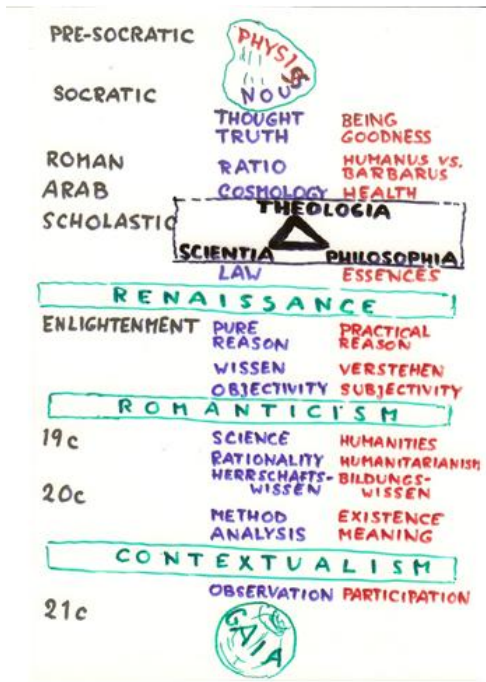 PRE-SOCRATIC PHYSIS
SOCRATIC NOUS
THOUGHT BEING
TRUTH GOODNESS
ROMAN RATIO HUMANUS VS.
BARBARUS
ARAB COSMOLOGY HEALTH
SCHOLASTIC THEOLOGIA
SCIENTIA PHILOSOPHIA
LAW ESSENCES
RENAISSANCE
ENLIGHTENMENT PURE PRACTICAL
REASON REASON
WISSEN VERSTEHEN
OBJECTIVITY SUBJECTIVITY
ROMANTICISM
19c SCIENCE HUMANITIES
RATIONALITY HUMANITARIANISM
20c HERRSCHAFTS- BILDUNGS-
WISSEN WISSEN
METHOD EXISTENCE
ANALYSIS MEANING
CONTEXTUALISM
OBSERVATION PARTICIPATION
21c GAIA